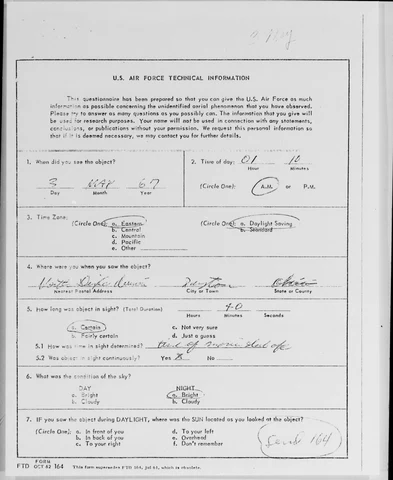 U.S. AIR FORCE TECHNICAL INFORMATION
This questionnaire has been prepared so that you can give the U.S. Air Force as much
information as possible concerning the unidentified aerial phenomenon that you have observed.
Please try to answer as many questions as you possibly can. The information that you give will
be used for research purposes. Your name will not be used in connection with any statements,
conclusions, or publications without your permission. We request this personal information so
that if it is deemed necessary, we may contact you for further details.
1. When did you see the object?
3 MAY 67
Day Month Year
2. Time of day: 01 10
Hour Minutes
(Circle One): A.M. or P.M.
3. Time Zone:
(Circle One): a. Eastern
b. Central
c. Mountain
d. Pacific
e. Other
(Circle One): a. Daylight Saving
b. Standard
4. Where were you when you saw the object?
Dixie Dayton Ohio
Nearest Postal Address City or Town State or County
5. How long was object in sight? (Total Duration) 40
Hours Minutes Seconds
a. Certain c. Not very sure
b. Fairly certain d. Just a guess
5.1 How was time in sight determined? of movie
5.2 Was object in sight continuously? Yes X No
6. What was the condition of the sky?
DAY NIGHT
a. Bright a. Bright
b. Cloudy b. Cloudy
7. IF you saw the object during DAYLIGHT, where was the SUN located as you looked at the object?
(Circle One): a. In front of you d. To your left
b. In back of you e. Overhead
c. To your right f. Don't remember
Send 164
FORM
FTD OCT 62 164 This form supersedes FTD 164, Jul 61, which is obsolete.